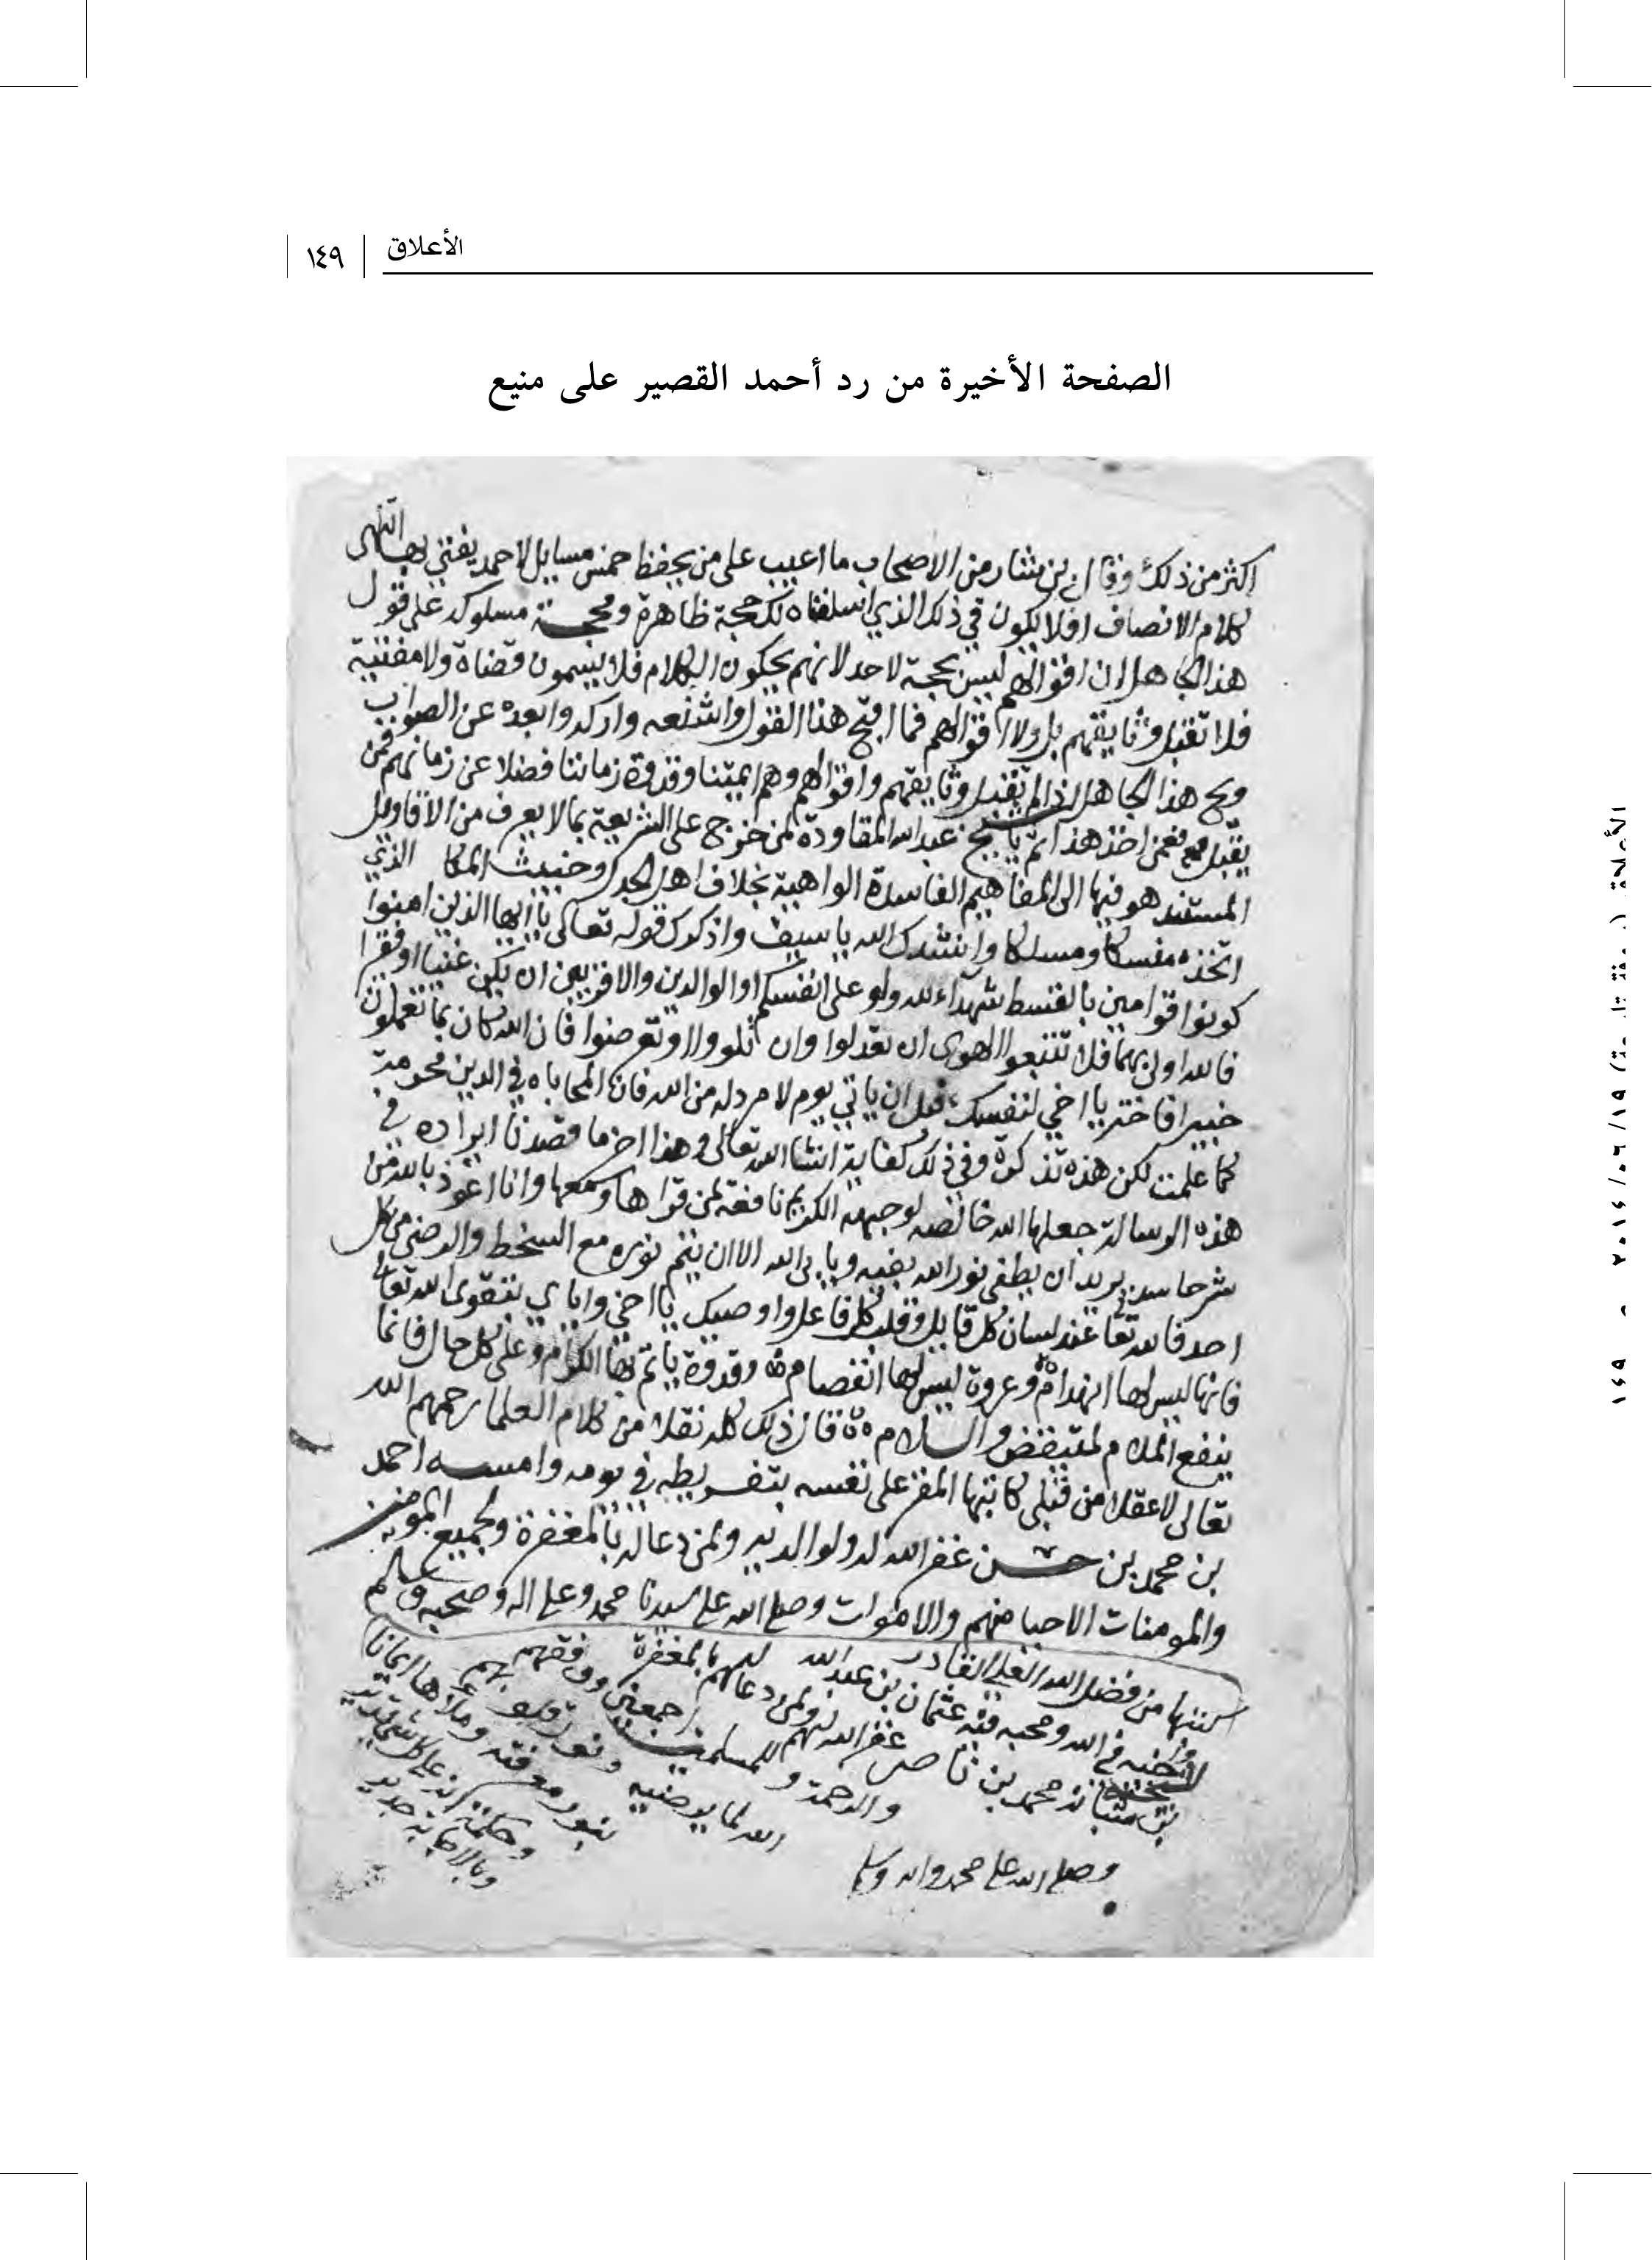 الأعلاق
١٤٩
الصفحة الأخيرة من رد أحمد القصير على منيع
اكثر من ذلك وقال بن بشار من الاصحاب ما اعيب على من يحفظ خمس مسايل لاحمد يفتي بها انتهى
كلام الانصاف افلا يكون في ذلك الذي اسلفناه لك حجة ظاهرة ومحجة مسلوكه على قول
هذا الجاهل ان اقوالهم ليس بحجة لاحد لانهم يحكون الكلام فلا يسمون قضاة ولا مفتية
فلا تقبل وثايقهم بل ولا اقوالهم فما اقبح هذا القول واشنعه واركه وابعده عن الصواب
ويح هذا الجاهل اذا لم تقبل وثايقهم واقوالهم وهم ايمتنا وقدوة زماننا فضلا عن زمانهم فمن
يقبل فعمن اخذ هذا ثم يا عبد الله المقاودة لمن خرج على الشريعة بما لا يعرف من الاقاويل
المستند هو فيها الى المفاهيم الفاسدة الواهية بخلاف اهل الجدل وخبيث المكا الذي
اتخذه منسكا ومسلكا وانشدك الله يا سيف واذكرك قوله تعالى يا ايها الذين امنوا
كونوا قوامين بالقسط شهداء لله ولو على انفسكم او الوالدين والاقربين ان يكن غنيا او فقيرا
فالله اولى بهما فلا تتبعوا الهوى ان تعدلوا وان تلووا او تعرضوا فان الله كان بما تعملون
خبيرا فاختر يا اخي لنفسك قبل ان ياتي يوم لا مرد له من الله فان المحاباه في الدين محرمة
كما علمت لكن هذه تذكرة وفي ذلك كفاية انشا الله تعالى وهذا اخر ما قصدنا ايراده في
هذه الرسالة جعلها الله خالصه لوجهه الكريم نافعة لمن قراها وسمعها وانا اعوذ بالله من
شر حاسد يريد ان يطفي نور الله بفيه ويابى الله الا ان يتم نوره مع السخط والرضى من كل
احد فالله تعالى عند لسان كل قايل وقلب كل فاعل واوصيك يا اخي واياي بتقوى الله تعالى
فانها ليس لها انهدام وعروة ليس لها انفصام وقدوة ياتم بها الكرام وعلى كل حال فانما
ينفع الملام لمتيقض والسلام فان ذلك كله نقلا من كلام العلما رحمهم الله
تعالى لا عقلا من قبلي كاتبها المقر على نفسه بتفريطه في يومه وامسه احمد
بن محمد بن حسن غفر الله له ولوالديه ولمن دعا له بالمغفرة ولجميع المومنين
والمومنات الاحيا منهم والاموات وصلى الله على سيدنا محمد وعلى اله وصحبه وسلم
كتبها من فضل الله العلي القادر
لاخيه في الله ومحبه فيه عثمان بن عبد الله
بن شبانه محمد بن ناصر غفر الله لهم ولمن دعا لهم بالمغفرة
والرحمة وللمسلمين اجمعين ووفقهم
الله لما يرضيه
بنور معرفته وملاها ايمانا
وحكمة انه على كل شي قدير
وبالاجابة جدير
وصلى الله على محمد واله وسلم